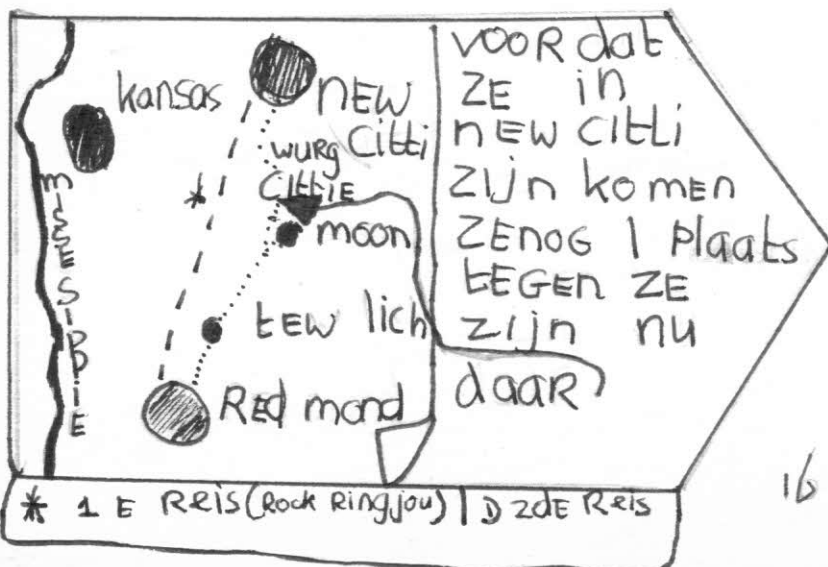 kansas
NEW
Citti
wurg
Cittie
moon
tew lich
Red mond
missesippie
VOORdat
ZE in
nEW Citti
zijn komen
ZENOG 1 Plaats
tEGEN ZE
zijn nu
daaR
* 1 E REis (Rock Ringjou) | D 2dE Reis
16